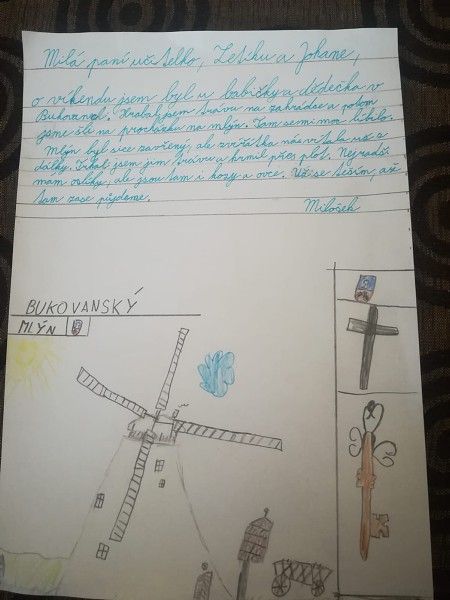 Milá paní učitelko, Zetíku a Johane,
o víkendu jsem byl u babičky a dědečka v
Bukovanech. Hrabal jsem trávu na zahrádce a potom
jsme šli na procházku na mlýn. Tam se mi moc líbilo.
Mlýn byl sice zavřený, ale zvířátka nás vítala už z
dálky. Trhal jsem jim trávu a krmil přes plot. Nejradši
mám oslíky, ale jsou tam i kozy a ovce. Už se těším, až
tam zase půjdeme.
Milošek
BUKOVANSKÝ
MLÝN